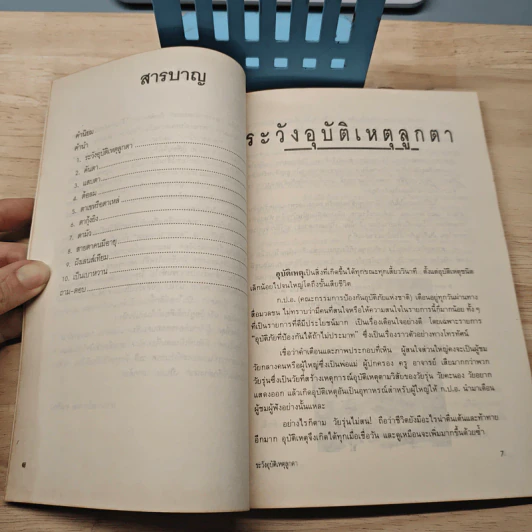 สารบาญ
คำนิยม
คำนำ
1. ระวังอุบัติเหตุลูกตา
2. คันตา
3. แสบตา
4. ต้อลม
5. ตาเขหรือตาเหล่
6. ตากุ้งยิง
7. ตามัว
8. สายตาคนมีอายุ
9. มีเลนส์เทียม
10. เป็นเบาหวาน
ถาม-ตอบ
ระวังอุบัติเหตุลูกตา
อุบัติเหตุเป็นสิ่งที่เกิดขึ้นได้ทุกขณะทุกเสี้ยววินาที ตั้งแต่อุบัติเหตุชนิด
เล็กน้อยไปจนใหญ่โตถึงขั้นเสียชีวิต
ก.ป.อ. (คณะกรรมการป้องกันอุบัติภัยแห่งชาติ) เตือนอยู่ทุกวันผ่านทาง
สื่อมวลชน ไม่ทราบว่ามีคนที่สนใจหรือให้ความสนใจในรายการนี้ก็มากน้อย ทั้ง ๆ
ที่เป็นรายการที่ดีมีประโยชน์มาก เป็นเรื่องเตือนใจอย่างดี โดยเฉพาะรายการ
"อุบัติภัยที่ป้องกันได้ถ้าไม่ประมาท" ซึ่งเป็นเรื่องราวตัวอย่างทางโทรทัศน์
เชื่อว่าคำเตือนและภาพประกอบที่เห็น ผู้สนใจส่วนใหญ่คงจะเป็นผู้ชม
วัยกลางคนหรือผู้ใหญ่ซึ่งเป็นพ่อแม่ ผู้ปกครอง ครู อาจารย์ เสียมากกว่าพวก
วัยรุ่นซึ่งเป็นวัยที่สร้างเหตุการณ์อุบัติเหตุตามวิสัยของวัยรุ่น วัยคะนอง วัยอยาก
แสดงออก แล้วเกิดอุบัติเหตุอันเป็นอุทาหรณ์สำหรับผู้ใหญ่ให้ ก.ป.อ. นำมาเตือน
ผู้ชมผู้ฟังอย่างนั้นแหละ
อย่างไรก็ตาม วัยรุ่นไม่สน! ถือว่าชีวิตยังมีอะไรน่าตื่นเต้นและท้าทาย
อีกมาก อุบัติเหตุจึงเกิดได้ทุกเมื่อเชื่อวัน และดูเหมือนจะเพิ่มมากขึ้นด้วยซ้ำ
ระวังอุบัติเหตุลูกตา
7